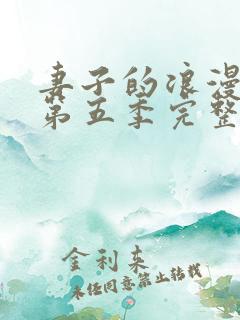 妻子的浪漫
第五季完整
金利来
未经同意禁止转载